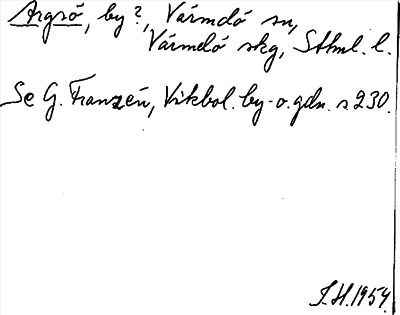 Argsö, by?, Värmdö sn,
Värmdö skg, Sthml. l.
Se G. Franzén, Vikbol. by- o. gdn. s 230.
I.H. 1954.